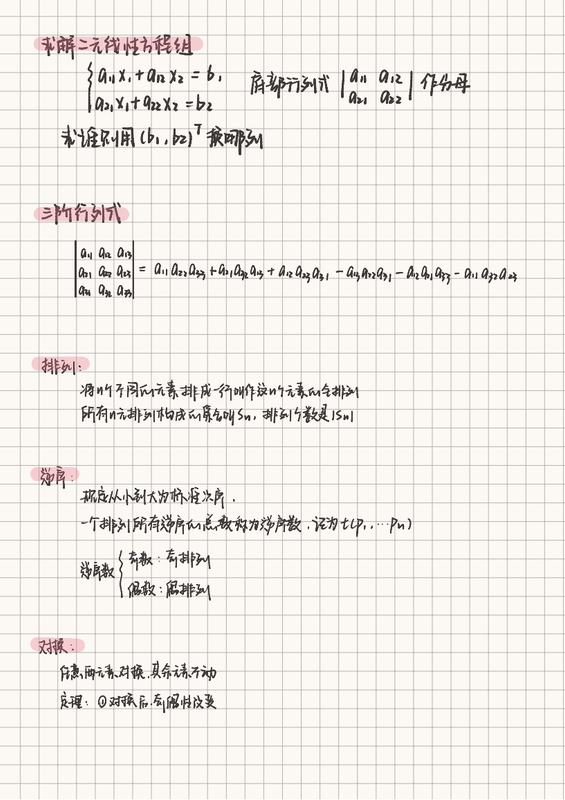 求解二元线性方程组
{ a₁₁x₁+a₁₂x₂=b₁
a₂₁x₁+a₂₂x₂=b₂ 行列式 | a₁₁ a₁₂
a₂₁ a₂₂ | 作分母
求谁则用 (b₁,b₂)ᵀ 换哪列
三阶行列式
| a₁₁ a₁₂ a₁₃
a₂₁ a₂₂ a₂₃
a₃₁ a₃₂ a₃₃ | = a₁₁a₂₂a₃₃+a₂₁a₃₂a₁₃+a₁₂a₂₃a₃₁-a₁₃a₂₂a₃₁-a₁₂a₂₁a₃₃-a₁₁a₃₂a₂₃
排列:
将n个不同的元素排成一行叫作这n个元素的全排列
所有n元排列构成的集合叫Sn, 排列个数是|Sn|
逆序:
规定从小到大为标准次序.
一个排列所有逆序的总数称为逆序数, 记为t(p₁,…pn)
逆序数 { 奇数: 奇排列
偶数: 偶排列
对换:
任意两元素对换, 其余元素不动
定理: ①对换后, 奇偶性改变